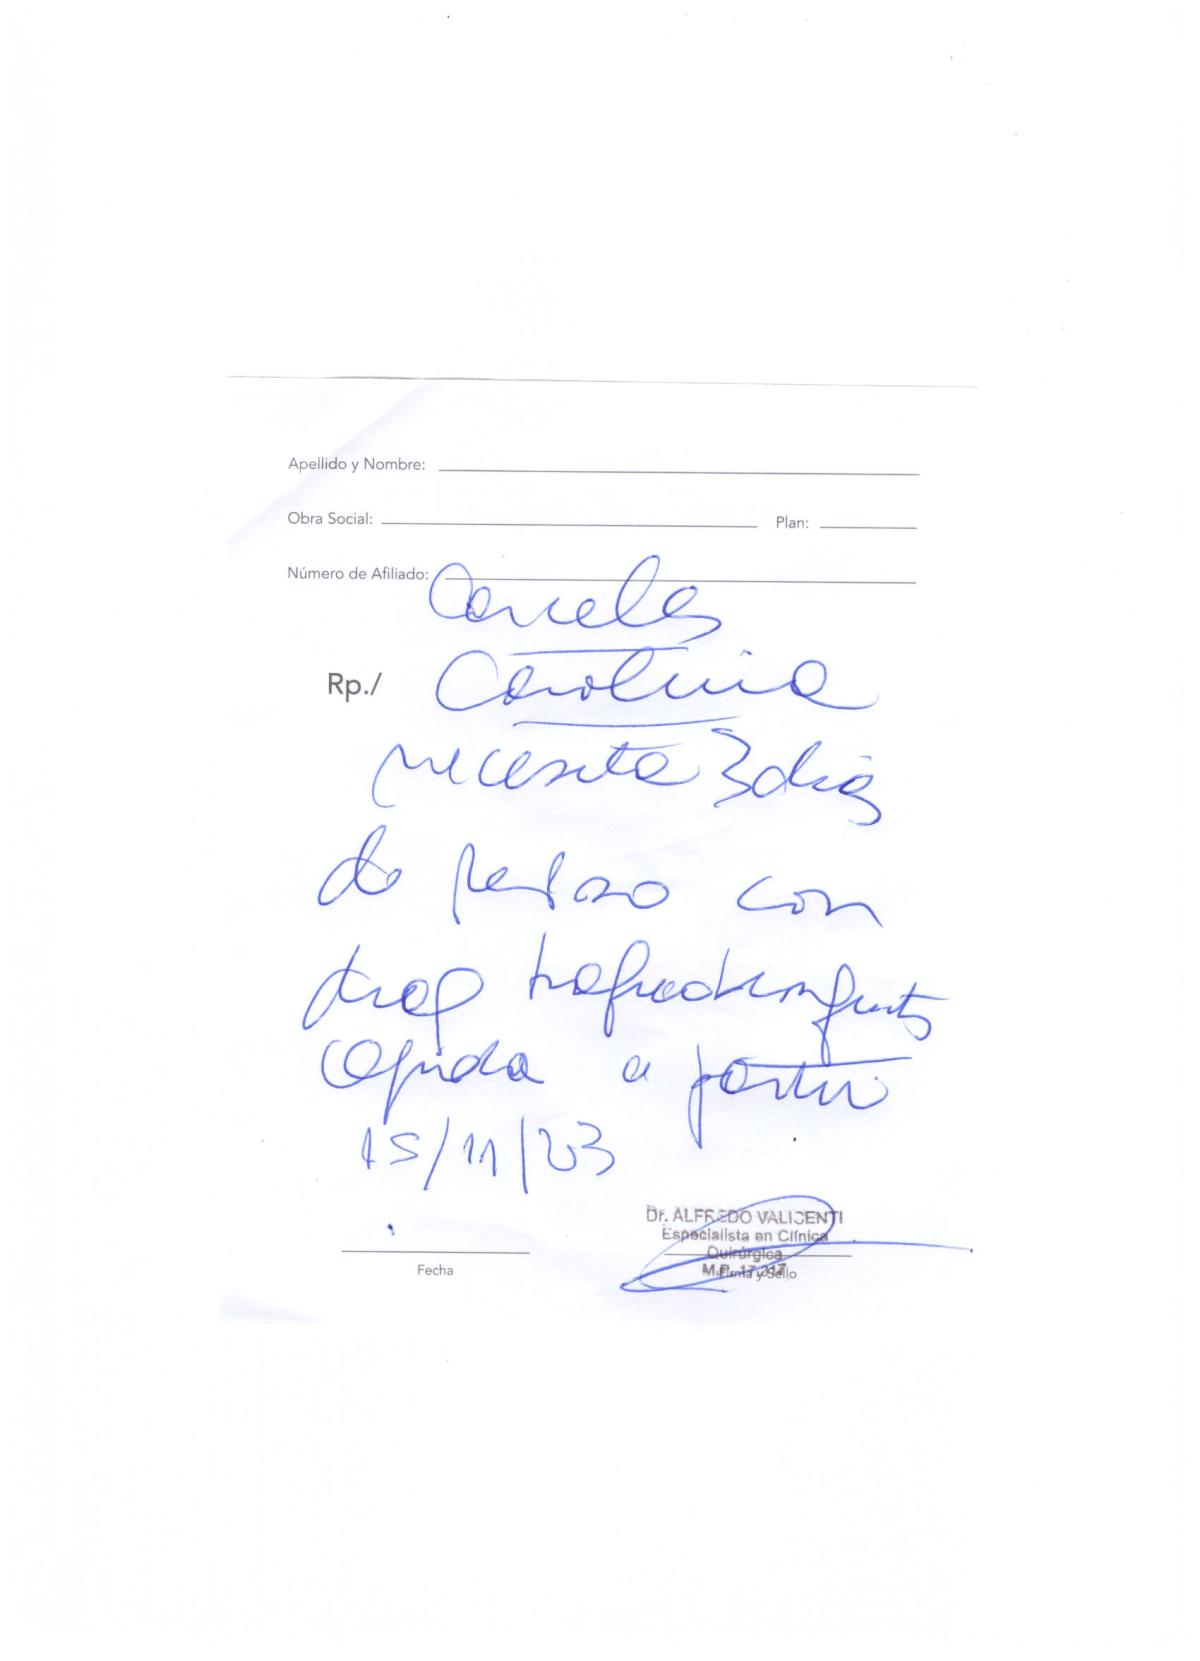 Apellido y Nombre:
Obra Social: Plan:
Número de Afiliado:
Rp./ Carolina
necesita 3 dias
de reposo con
diag
aguda a partir
15/11/23
Dr. ALFREDO VALICENTI
Especialista en Clínica
Quirúrgica
M.P.
Fecha Firma y Sello